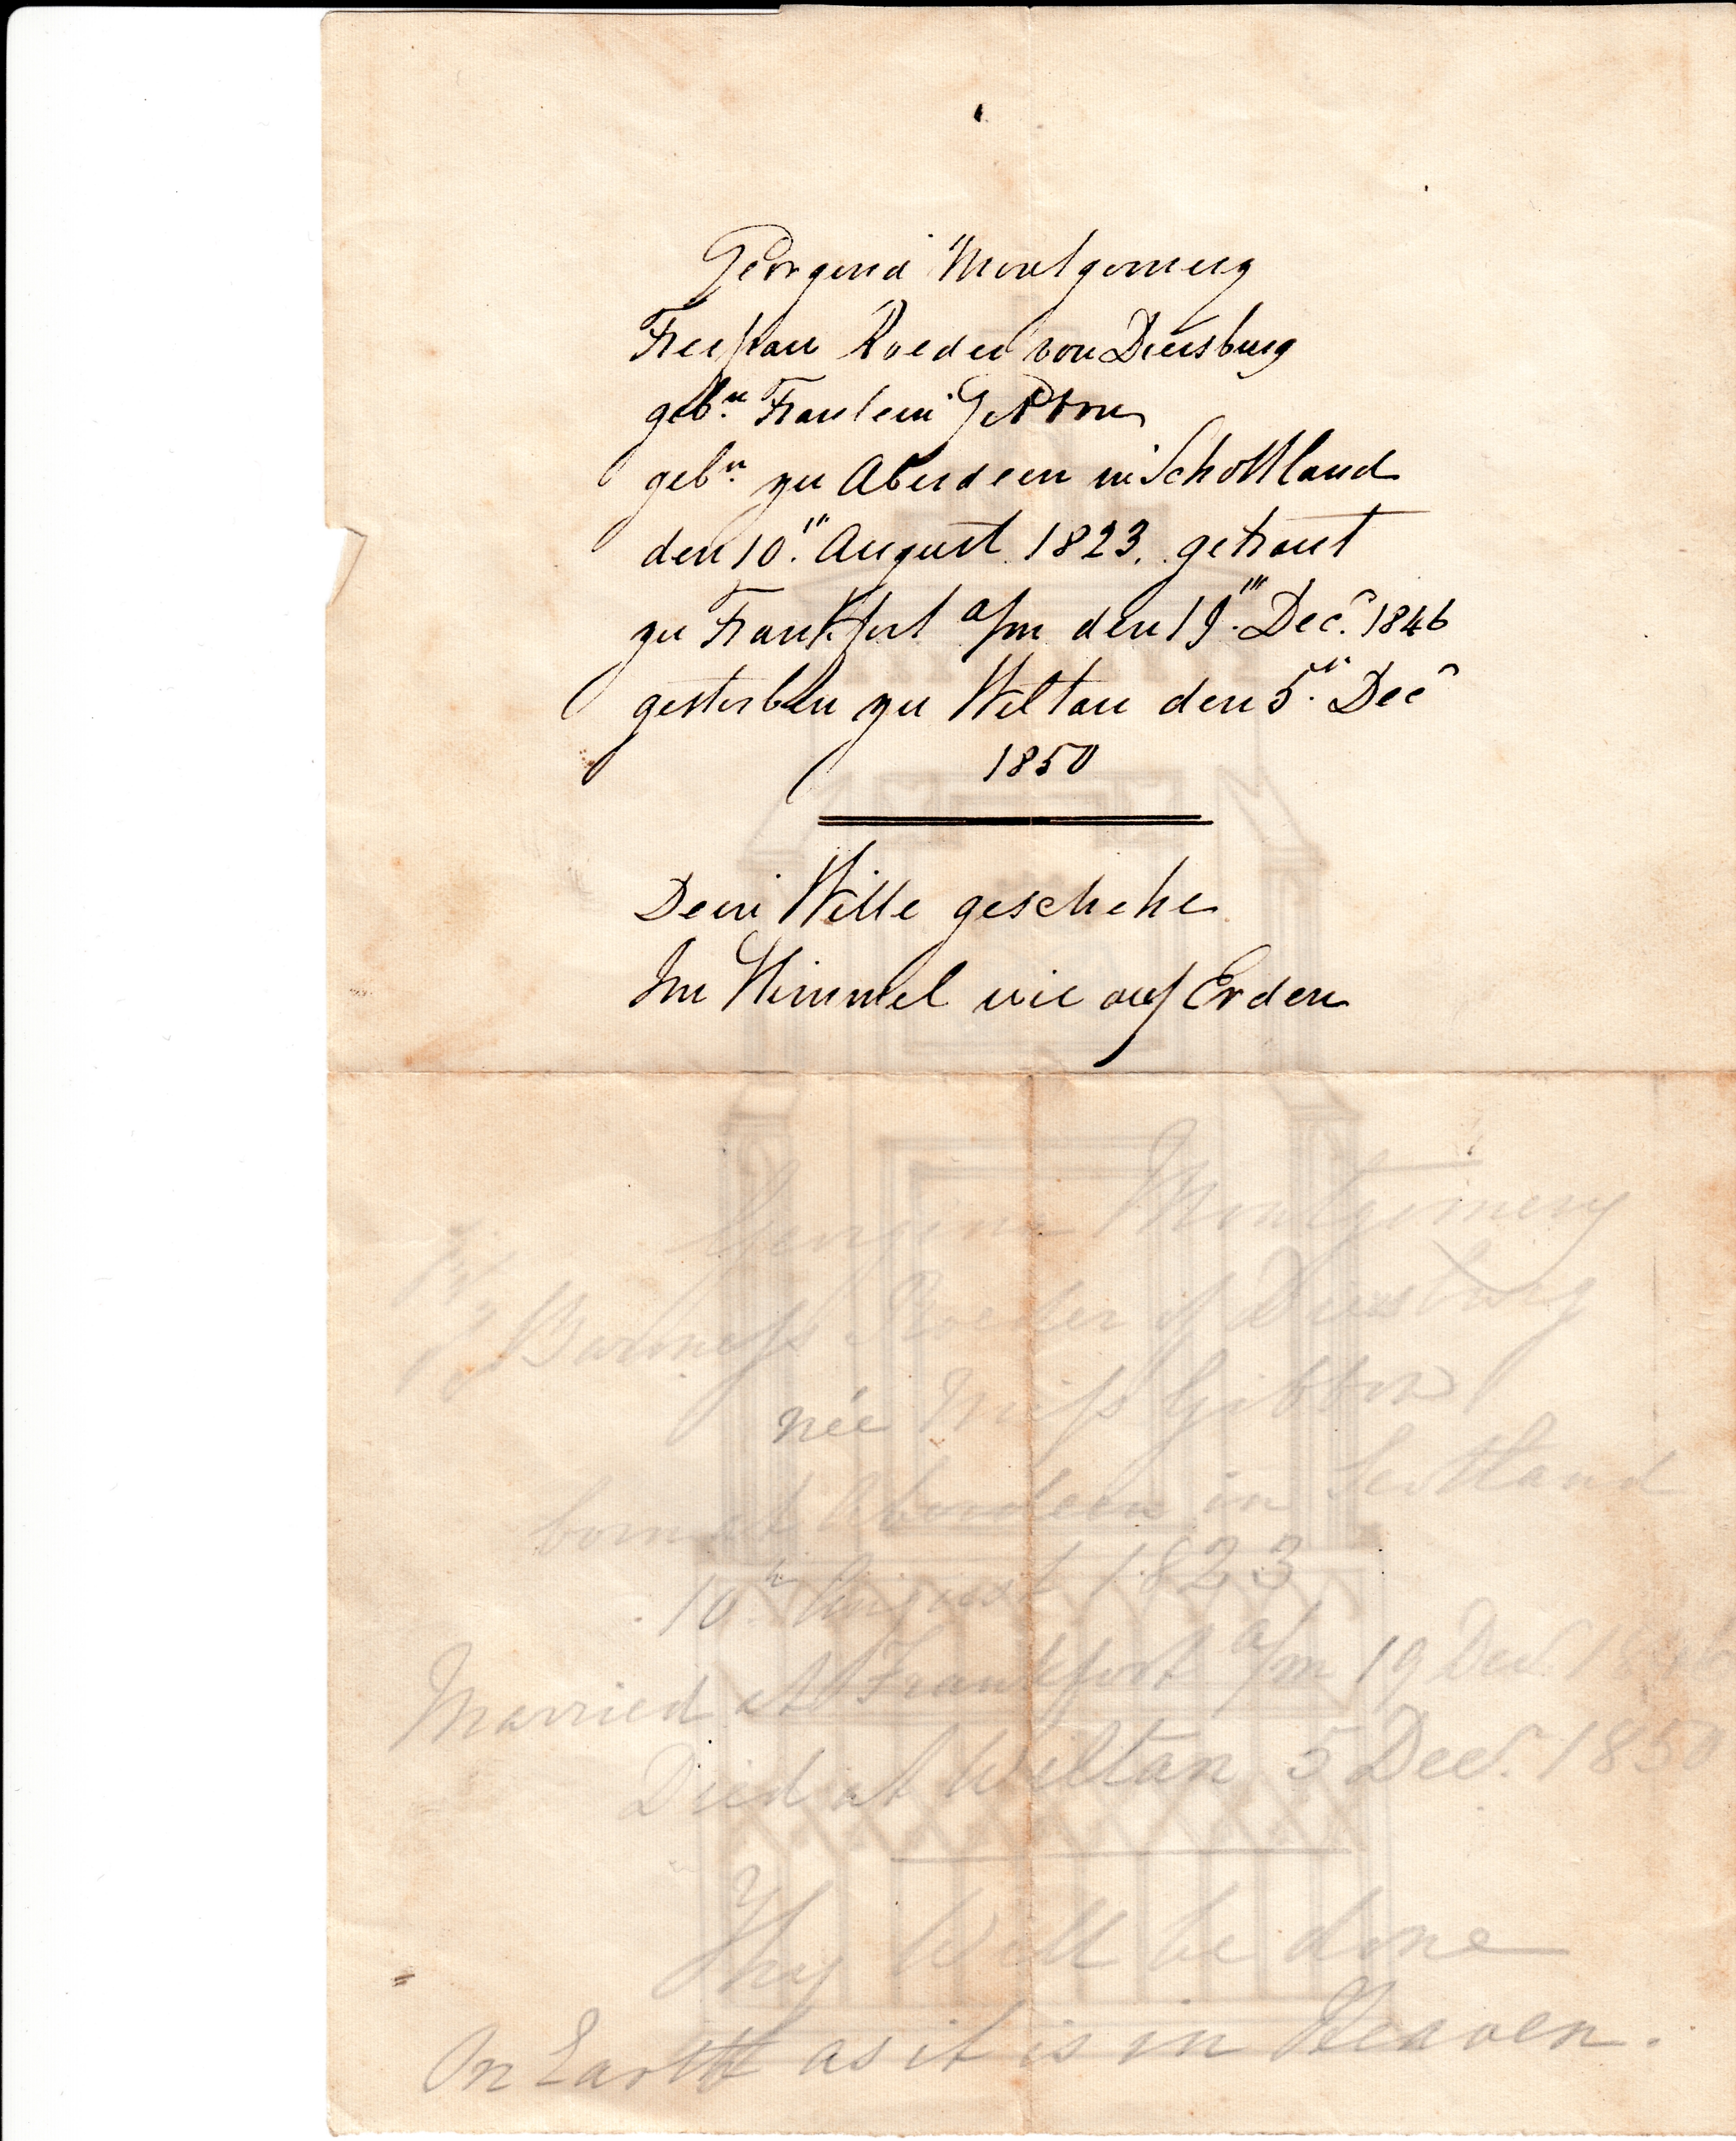 Georgina Montgomery
Freifrau Roeder von Diersburg
geb.n Fraulein Gibbon
geb.n zu Aberdeen in Schottland
den 10.ten August 1823. getraut
zu Frankfort a/m den 19.ten Dec.r 1846
gestorben zu Wiltau den 5.ten Decr
1850
Dein Wille geschehe
Im Himmel wie auf Erden
Georgina Montgomery
Baroness Roeder of Diersburg
née Miss Gibbon
born at Aberdeen in Scotland
10th August 1823
Married at Frankfort a/m 19 Decr. 1846
Died at Wiltau 5 Decr. 1850
Thy Will be done
On Earth as it is in Heaven.